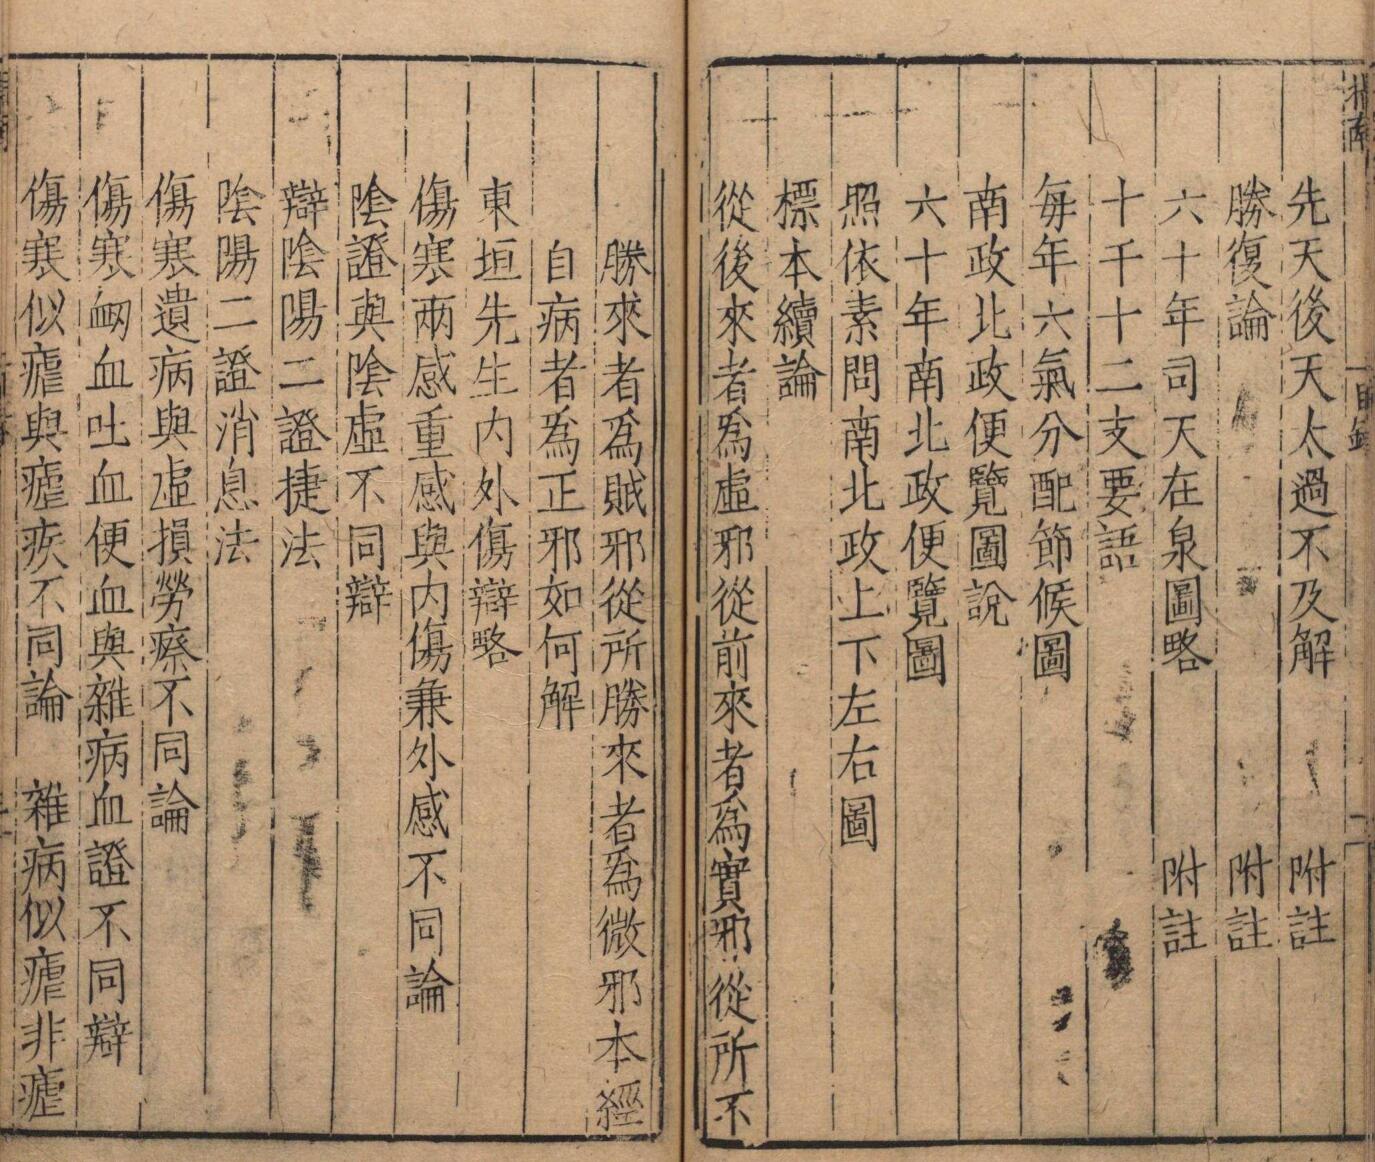 指南
目錄
二
先天後天太過不及解 附註
勝復論 附註
六十年司天在泉圖略 附註
十千十二支要語
每年六氣分配節候圖
南政北政便覽圖說
六十年南北政便覽圖
照依素問南北政上下左右圖
標本續論
從後來者為虛邪從前來者為實邪從所不
勝來者為賊邪從所勝來者為微邪本經
自病者為正邪如何解
東垣先生內外傷辯略
傷寒兩感重感與內傷兼外感不同論
陰證與陰虛不同辯
辯陰陽二證捷法
陰陽二證消息法
傷寒遺病與虛損勞瘵不同論
傷寒衂血吐血便血與雜病血證不同辯
傷寒似瘧與瘧疾不同論 雜病似瘧非瘧